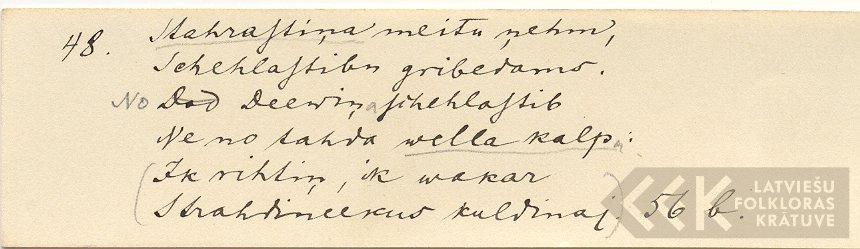 48. Stahrastiņa meitu ņehm,
Schehlastibu gribedams.
No Dod Deewiņa schehlastib
Ne no tahda wella kalpa.
(Ik rihtiņ, ik wakar
Strahdineekus kuldinaj.) 56 b.
LATVIEŠU
FOLKLORAS
KRĀTUVE